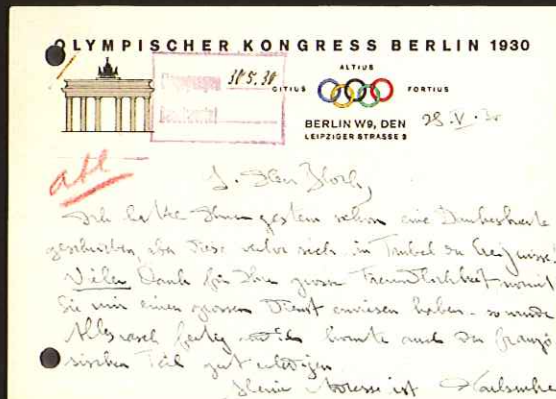 OLYMPISCHER KONGRESS BERLIN 1930
ALTIUS
CITIUS FORTIUS
30.5.30
BERLIN W9, DEN 28.V.30
LEIPZIGER STRASSE 3
L. Herr
Ich hatte Ihnen gestern schon eine Dankeskarte
geschrieben, aber diese verlor sich im Trubel der Ereignisse!
Vielen Dank für Ihre grosse Freundlichkeit womit
Sie mir einen grossen Dienst erwiesen haben. so wurde
Alles rasch fertig konnte auch den franzö
sischen Teil gut erledigen.
Meine Adresse ist Karlsruhe